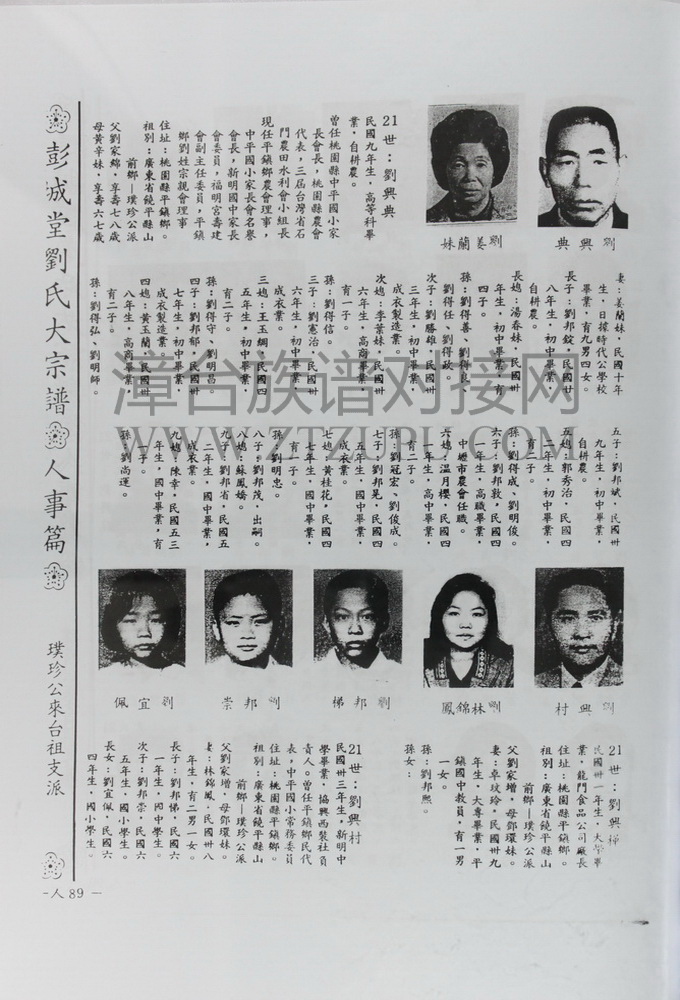 彭城堂劉氏大宗譜
人事篇
璞珍公來台祖支派
-人89-
劉興典
劉姜蘭妹
21世：劉興典
民國九年生，高等科畢
業，自耕農。
曾任桃園縣中平國小家
長會長，桃園縣農會
代表，三屆台灣省石
門農田水利會小組長
現任平鎮鄉農會理事，
中平國小家長會名譽
會長，新明國中家長
會委員，福明宮壽建
會副主任委員，平鎮
鄉劉姓宗親會理事
住址：桃園縣平鎮鄉。
祖別：廣東省饒平縣山
前鄉—璞珍公派
父劉家錦，享壽七八歲
母黃辛妹，享壽六七歲
妻：姜蘭妹，民國十年
生，日據時代公學校
畢業，育九男四女。
長子：劉邦錠，民國廿
八年生，初中畢業，
自耕農。
長媳：湯春妹，民國卅
年生，初中畢業，育
四子。
孫：劉得善、劉得良、
劉得任、劉得政。
次子：劉勝雄，民國卅
三年生，初中畢業，
成衣製造業。
次媳：李葉妹，民國卅
六年生，高商畢業，
育一子。
孫：劉得信。
三子：劉憲治，民國卅
六年生，初中畢業，
成衣業。
三媳：王玉綢，民國四
五年生，初中畢業，
育二子。
孫：劉得守、劉明昌。
四子：劉邦郁，民國卅
七年生，初中畢業，
成衣製造業
四媳：黃玉蘭，民國卅
八年生，高商畢業，
育二子。
孫：劉得弘、劉明師。
五子：劉邦斌，民國卅
九年生，初中畢業，
自耕農。
五媳：郭秀治，民國四
一年生，初中畢業，
育二子。
孫：劉得成、劉明俊。
六子：劉邦敦，民國四
一年生，高職畢業，
中壢市農會任職。
六媳：溫月櫻，民國四
一年生，高中畢業，
育二子。
孫：劉冠宏、劉俊成。
七子：劉邦晃，民國四
五年生，國中畢業，
成衣業。
七媳：黃桂花，民國四
七年生，國中畢業，
育一子。
孫：劉明忠。
八子：劉邦茂，出嗣。
八媳：蘇鳳嬌。
九子：劉邦省，民國五
二年生，國中畢業，
成衣業。
九媳：陳幸，民國五三
年生，國中畢業，育
一子。
孫：劉尚運。
劉興村
劉林錦鳳
劉邦梯
劉邦崇
劉宜佩
民國卅一年生，大學畢
業，龍門食品公司廠長
住址：桃園縣平鎮鄉。
祖別：廣東省饒平縣山
前鄉—璞珍公派
父劉家增，母鄧環妹。
妻：卓玟玲，民國卅九
年生，大專畢業，平
鎮國中教員，育一男
一女。
孫：劉邦熙。
孫女：
21世：劉興村
民國卅三年生，新明中
學畢業，協興西裝社負
責人。曾任平鎮鄉民代
表，中平國小常務委員
住址：桃園縣平鎮鄉。
祖別：廣東省饒平縣山
前鄉—璞珍公派
父劉家增，母鄧環妹。
妻：林錦鳳，民國卅八
年生，育二男一女。
長子：劉邦梯，民國六
一年生，國中學生。
次子：劉邦崇，民國六
五年生，國小學生。
長女：劉宜佩，民國六
四年生，國小學生。
漳台族谱对接网
WWW.ZTZUPU.COM